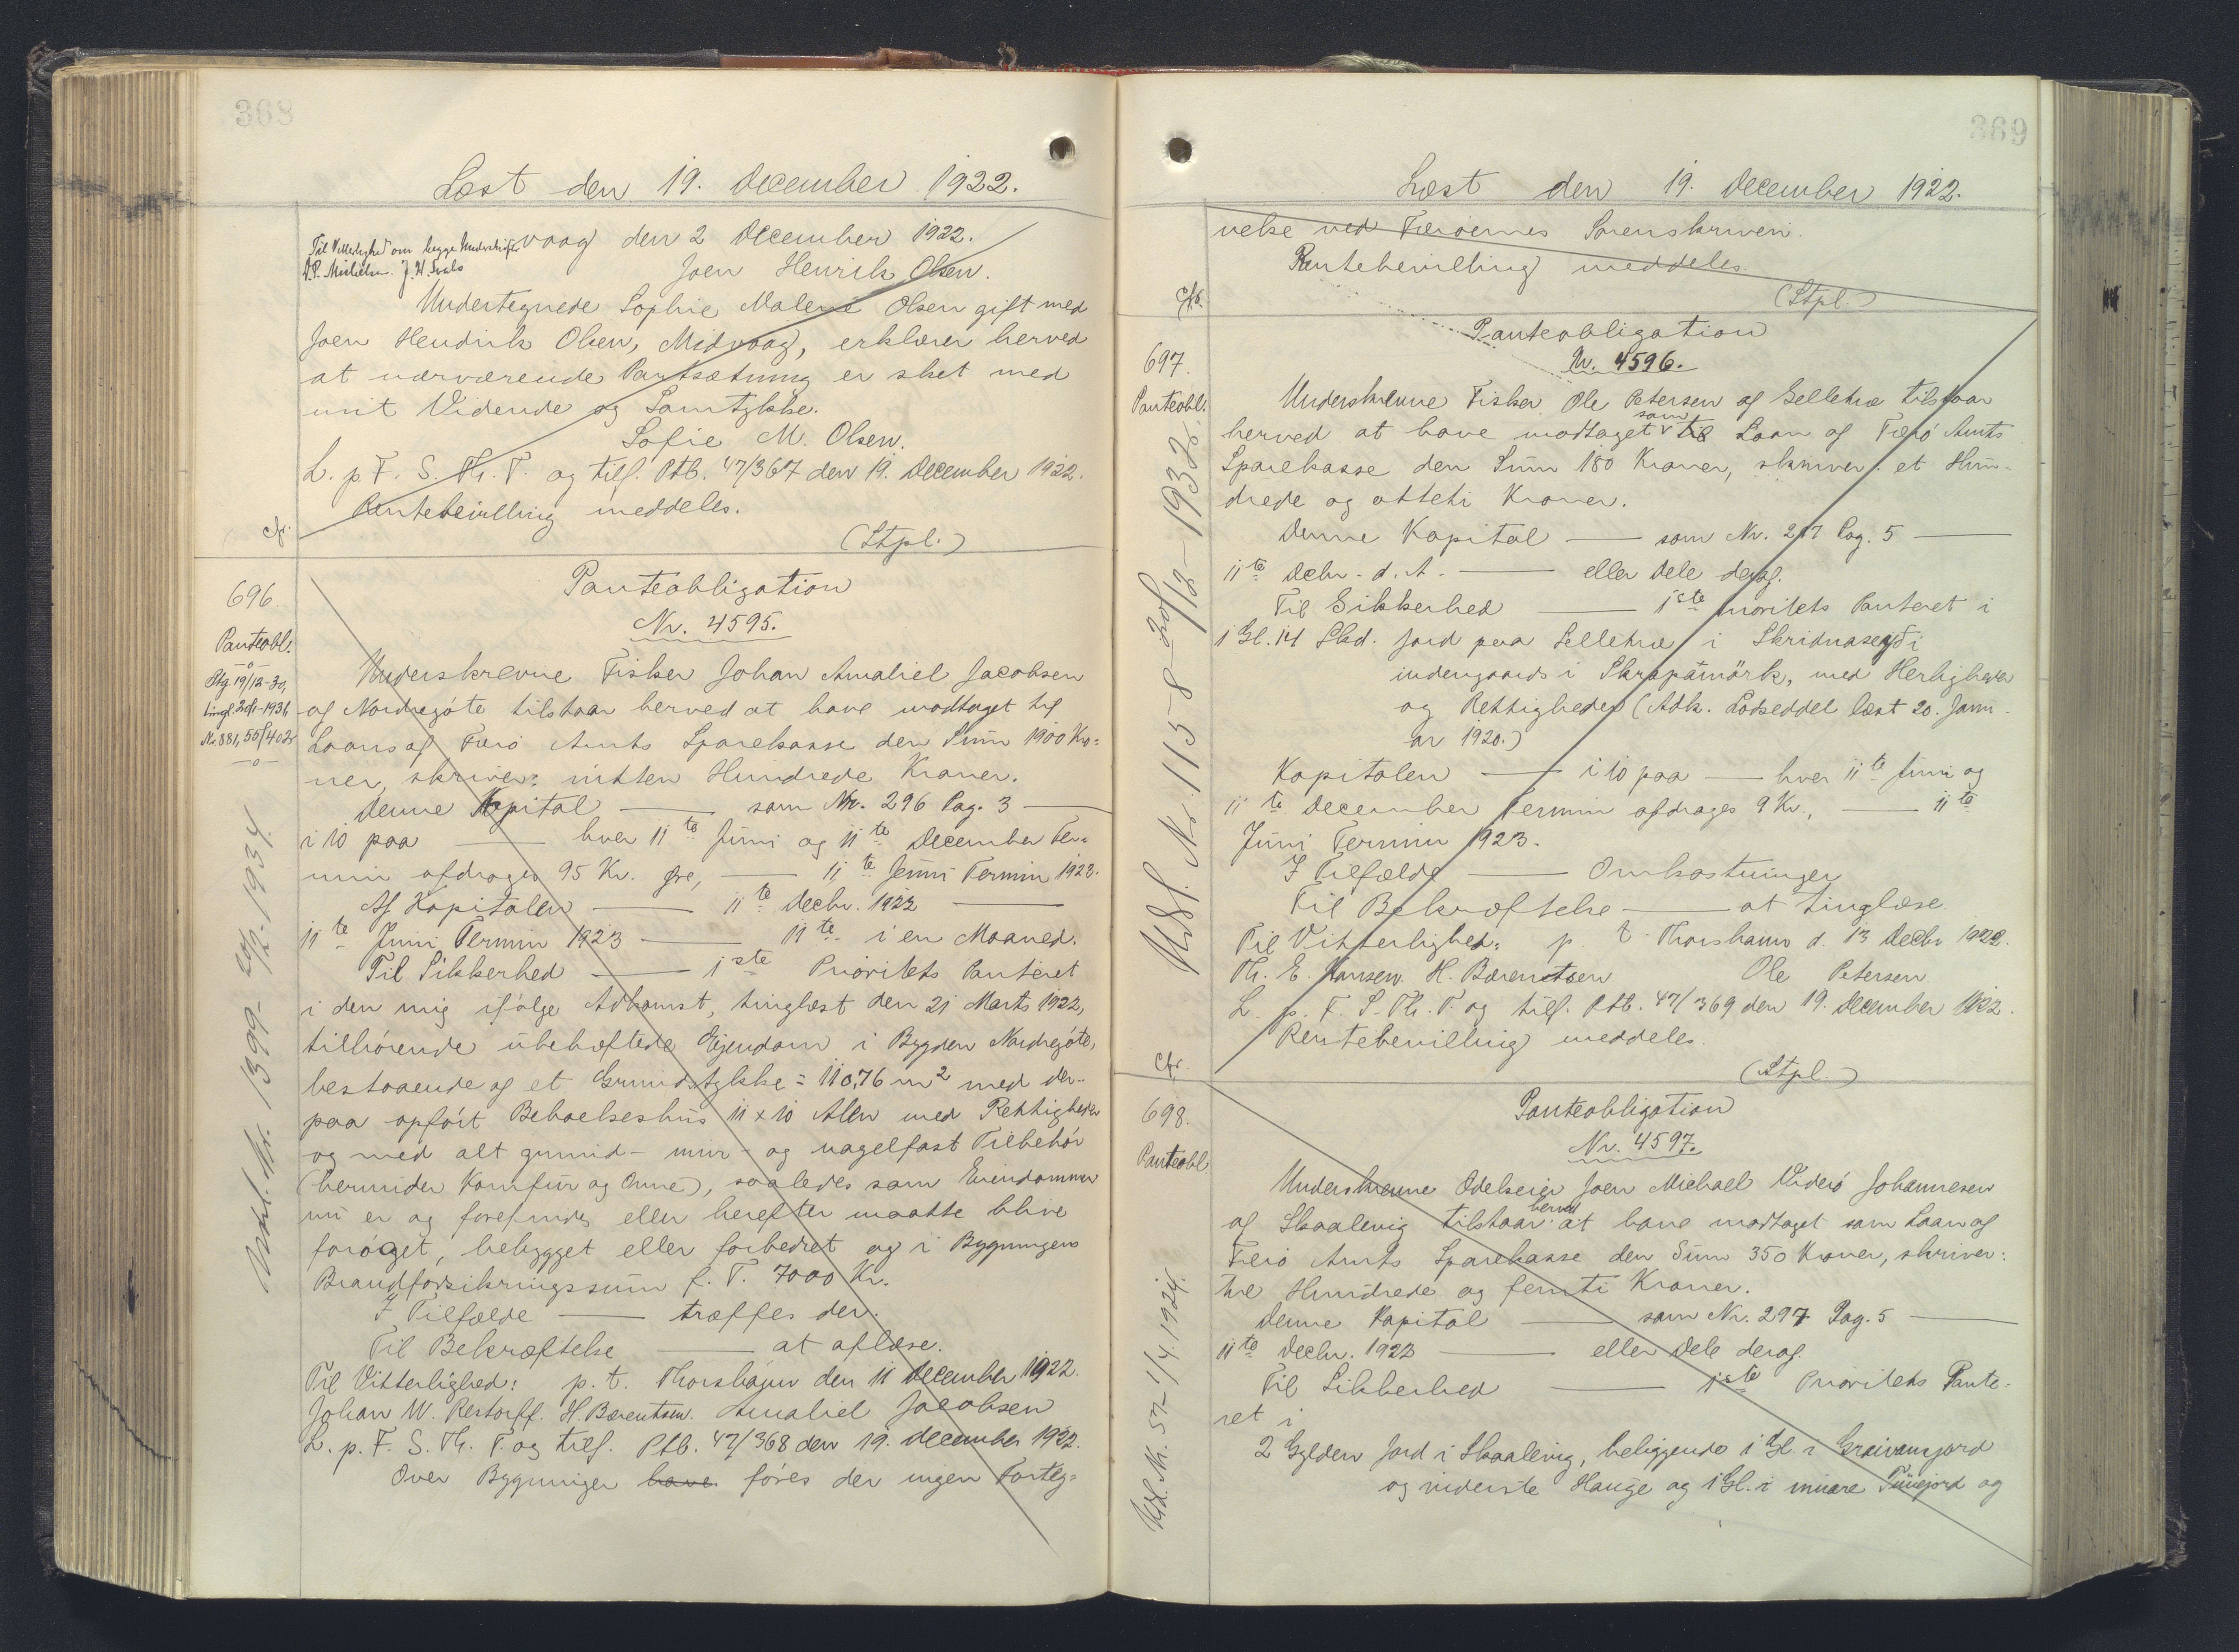 368
Læst den 19. December 1922.
Til Vitterlighed om begge Underskrifter
D.P. Michelsen. J.H. Svabo
vaag den 2 December 1922.
Joen Henrik Olsen.
Undertegnede Sophie Malene Olsen gift med
Joen Hendrik Olsen, Midvaag, erklærer herved
at nærværende Pantsætning er sket med
mit Vidende og Samtykke.
Sofie M. Olsen.
L. p. F. S. Th. T. og tilf. Ptb. 47/367 den 19. December 1922.
Rentebevilling meddeles.
cfr.
(Stpl.)
696.
Panteobl.
Ptg. 19/12-30,
tingl. 20/1-1931,
No 881, 55/402
Udsl. Nr. 1399- 20/12-1934.
Panteobligation
Nr. 4595.
Underskrevne Fisker Johan Amaliel Jacobsen
af Nordregøte tilstaar herved at have modtaget til
Laans af Færø Amts Sparekasse den Sum 1900 Kro-
ner, skriver: nitten Hundrede Kroner.
Denne Kapital — som Nr. 296 Pag. 3 —
i 10 paa — hver 11te Juni og 11te December Ter-
min afdrages 95 Kr. Øre, — 11te Juni Termin 1923.
Af Kapitalen — 11te Decbr. 1922 —
11te Juni Termin 1923 — 11te i en Maaned.
Til Sikkerhed — 1ste Prioritets Panteret
i den mig ifølge Adkomst, tinglæst den 21 Marts 1922,
tilhørende ubehæftede Ejendom i Bygden Nordregøte,
bestaaende af et Grundstykke = 110,76 m2 med der-
paa opført Beboelseshus 11 x 10 Alen med Rettigheder
og med alt grund- mur- og nagelfast Tilbehør
(herunder Komfur og Ovne), saaledes som Ejendommen
nu er og forefindes eller herefter maatte blive
forøget, bebygget eller forbedret og i Bygningens
Brandforsikringssum p. T. 7000 Kr.
I Tilfælde — træffes der.
Til Bekræftelse — at aflæse.
Til Vitterlighed: p. t. Thorshavn den 11 December 1922.
Johan W. Restorff. H. Bærentsen. Amaliel Jacobsen
L. p. F. S. Th. T. og tilf. Ptb. 47/368 den 19. December 1922.
Over Bygninger have føres der ingen Forteg-
369
Læst den 19. December 1922.
nelse ved Færøernes Sorenskriveri.
Rentebevilling meddeles.
cfr.
(Stpl.)
697.
Panteobl.
Udsl. Nr. 1158- 20/12-1932.
Panteobligation
Nr. 4596.
Underskrevne Fisker Ole Petersen af Selletræ tilstaar
herved at have modtaget som til Laan af Færø Amts
Sparekasse den Sum 180 Kroner, skriver: et Hun-
drede og otteti Kroner.
Denne Kapital — som Nr. 297 Pag. 5 —
11te Decbr. d. A. — eller Dele deraf.
Til Sikkerhed — 1ste Prioritets Panteret i
1 Gl. 14 Skd. Jord paa Selletræ i
indengaards i med Herligheder
og Rettigheder (Adk. Lodseddel læst 20. Janu-
ar 1920.)
Kapitalen — i 10 paa — hver 11te Juni og
11te December Termin afdrages 9 Kr., — 11te
Juni Termin 1923.
I Tilfælde — Omkostninger
Til Bekræftelse — at tinglæse.
Til Vitterlighed: p. t. Thorshavn d. 13 Decbr 1922.
Th. E. Hansen. H. Bærentsen Ole Petersen
L. p. F. S. Th. T. og tilf. Ptb. 47/369 den 19. December 1922.
Rentebevilling meddeles.
cfr.
(Stpl.)
698.
Panteobl.
Udsl. Nr. 57- 1/4.1924.
Panteobligation
Nr. 4597.
Underskrevne Odelsejer Joen Michael Viderø Johannesen
af Skaalevig tilstaar herved at have modtaget som Laan af
Færø Amts Sparekasse den Sum 350 Kroner, skriver:
tre Hundrede og femti Kroner.
Denne Kapital — som Nr. 297 Pag. 5 —
11te Decbr. 1922 — eller Dele deraf.
Til Sikkerhed — 1ste Prioritets Pante-
ret i
2 Gylden Jord i Skaalevig, beliggende 1 Gl. i
og niderste Hauge og 1 Gl. i og